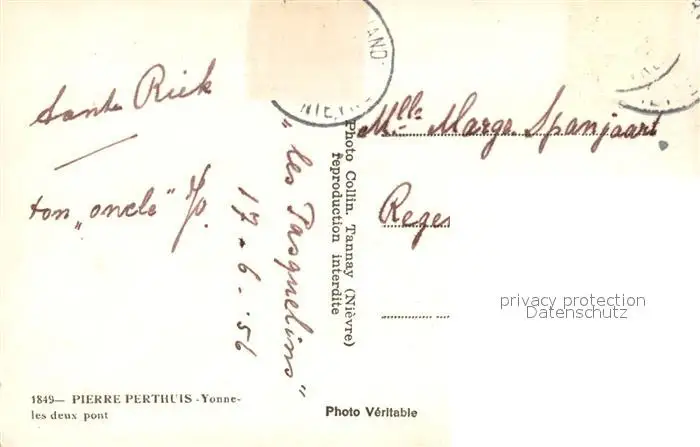 AND
NIÈVRE
Tante Riek
ton „oncle" Jo.
"les Pasquelins"
17-6-'56
Photo Collin. Tannay (Nièvre)
reproduction interdite
Mlle Marga Spanjaart
Rezer
privacy protection
Datenschutz
1849— PIERRE PERTHUIS -Yonne-
les deux pont
Photo Véritable